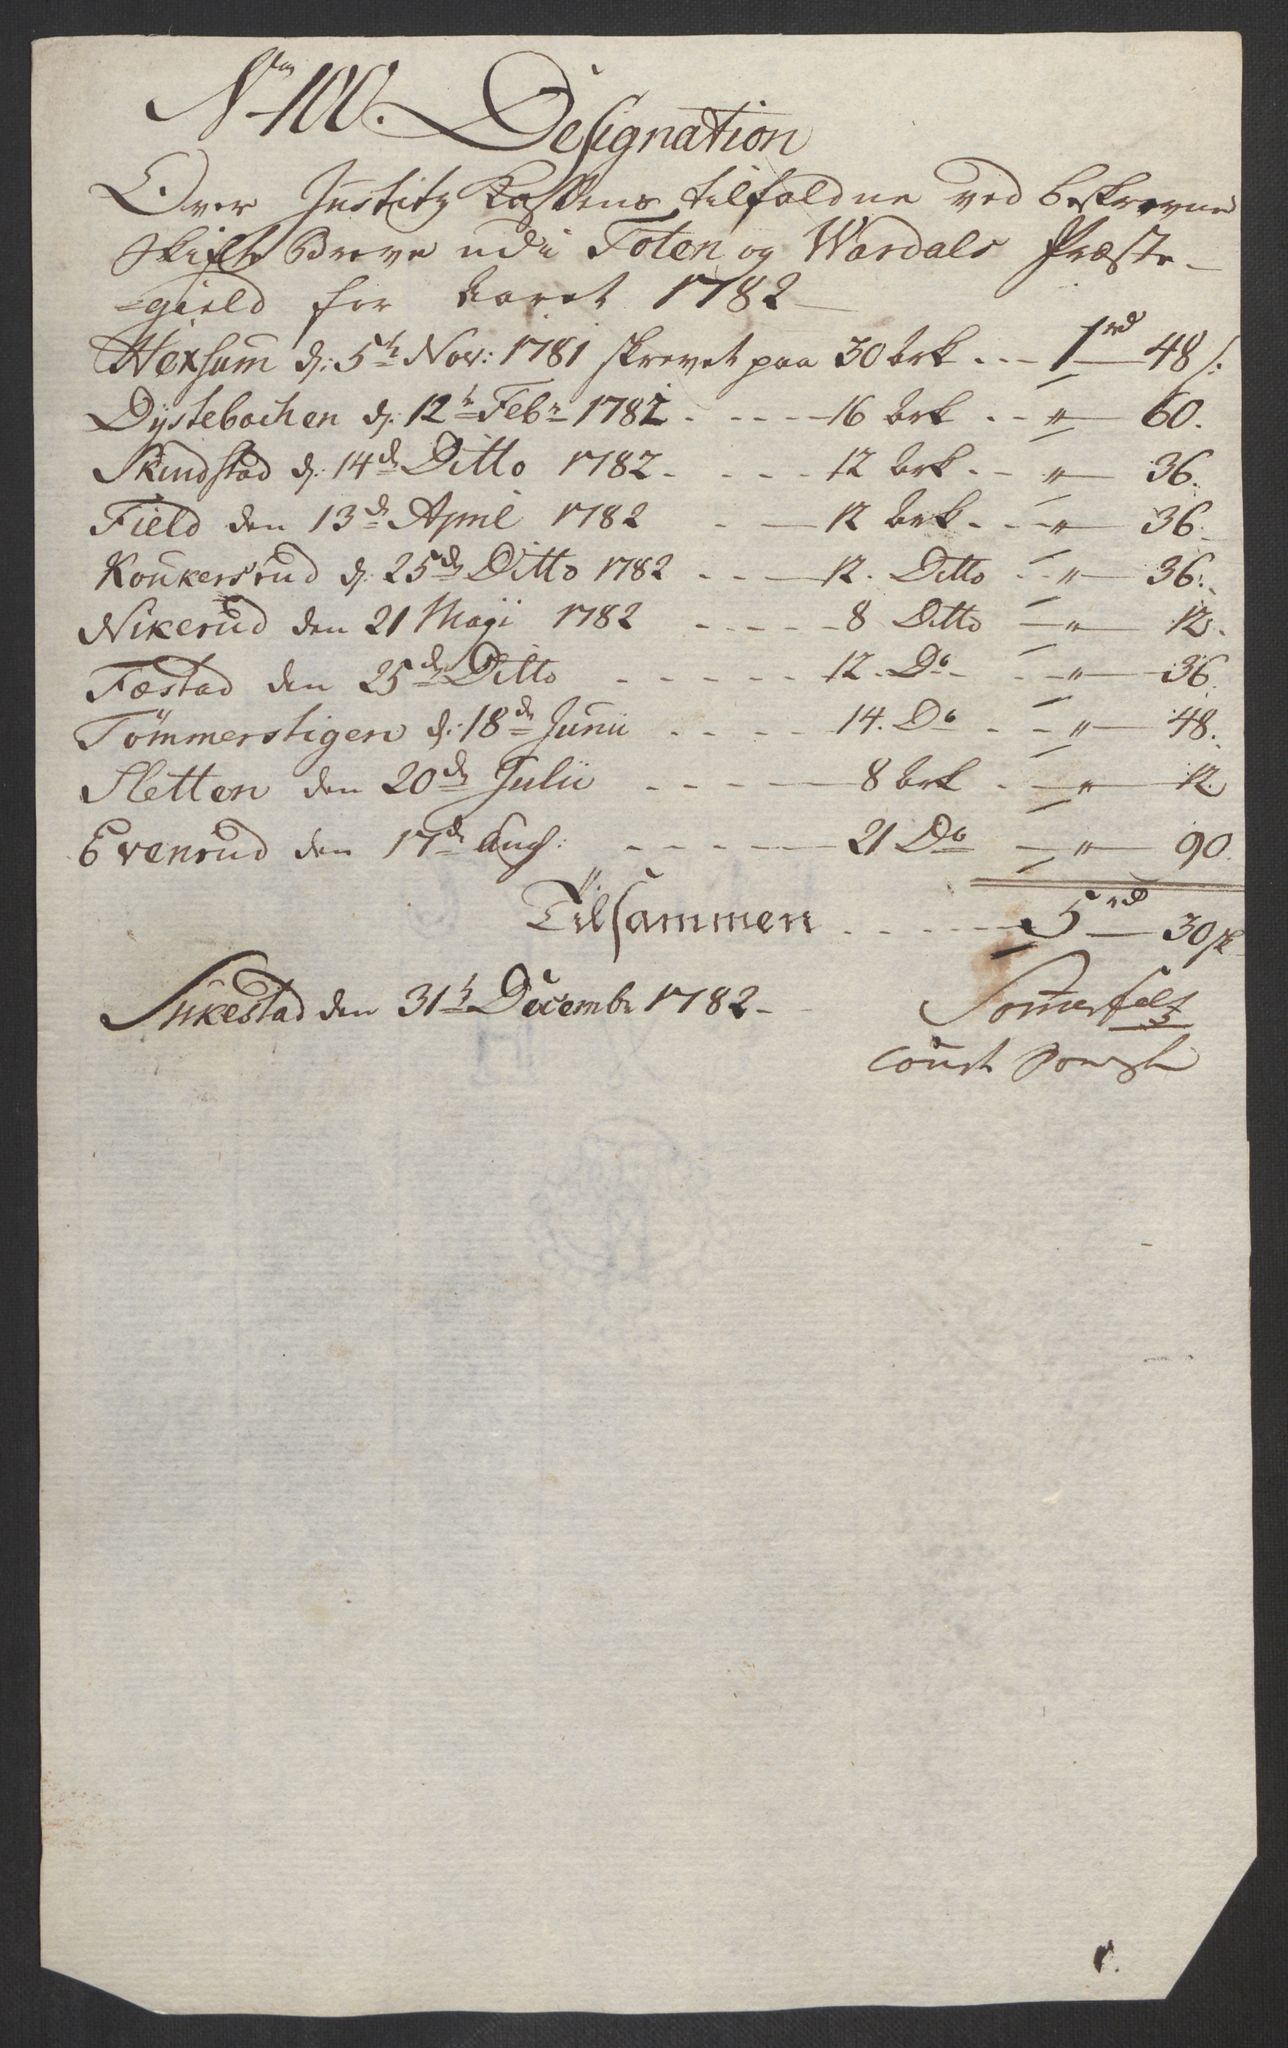 No 100. Designation
Over Justitz Kassens tilfaldne ved beskrevne
Skifte Breve udi Toten og Wardals Præste-
=gield for Aaret 1782
Hexsum d: 5te Nov: 1781 skrevet paa 30 ark - - - 1 rd 48 s:
Dystebachen d: 12te Febr 1782 - - - - 16 ark - - " 60.
Skundstad d: 14de Ditto 1782 - - - - 12 ark - - " 36.
Field den 13de April 1782 - - 12 ark - - " 36.
Koukersrud d: 25de Ditto 1782 - - - 12. Ditto - - " 36.
Nikerud den 21 Maji 1782 - - - - - 8 Ditto - " 12.
Fæstad den 25de Ditto - - - - - 12. Do - - " 36.
Tömmerstigen d: 18de Junii - - - - 14. Do - - " 48.
Sletten den 20de Julii - - - - 8 ark - - " 12.
Evenrud den 17de Aug: - - - - 21 Do - " 90.
Tilsammen - - - - 5 rd 30 sk
Sukestad den 31te Decembr 1782 -
Somerfelt
const